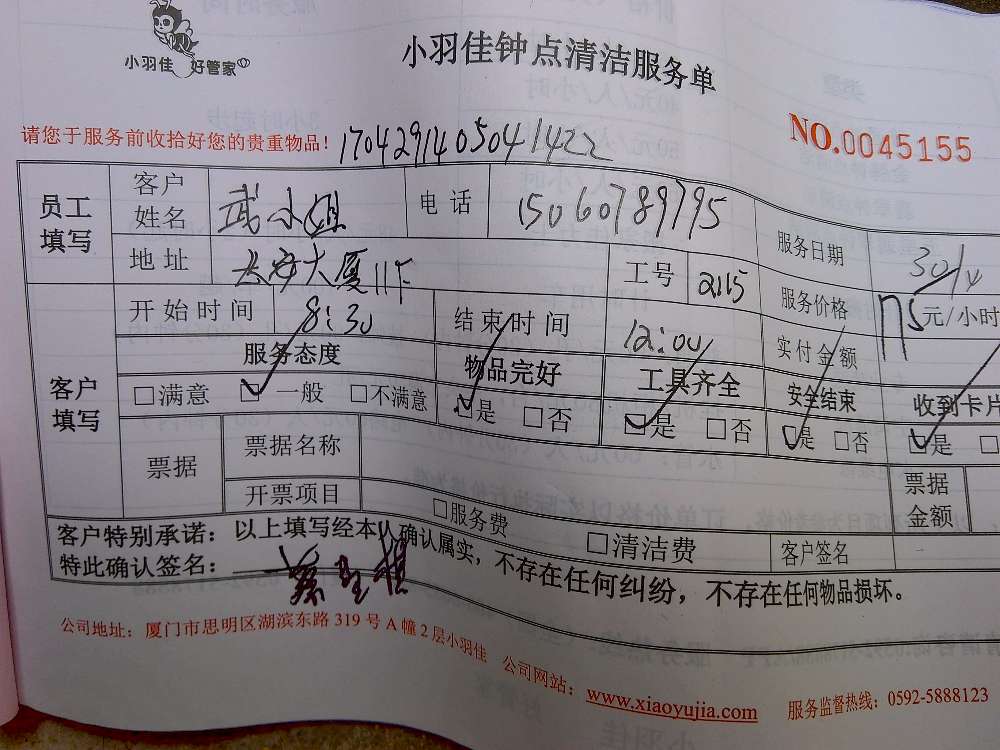 小羽佳 好管家
小羽佳钟点清洁服务单
请您于服务前收拾好您的贵重物品! 1704291405041422
NO.0045155
员工填写 客户姓名 武小姐 电话 15060789795 服务日期 30/4
地址 长安大厦11F 工号 2115 服务价格 元/小时
客户填写 开始时间 8:30 结束时间 12:00 实付金额
服务态度 物品完好 工具齐全 安全结束 收到卡片
□满意 ☑一般 □不满意 ☑是 □否 ☑是 □否 ☑是 □否 ☑是 □
票据 票据名称 票据金额
开票项目 □服务费 □清洁费 客户签名
客户特别承诺：以上填写经本人确认属实，不存在任何纠纷，不存在任何物品损坏。
特此确认签名：
公司地址：厦门市思明区湖滨东路319号A幢2层小羽佳 公司网站：www.xiaoyujia.com 服务监督热线：0592-5888123